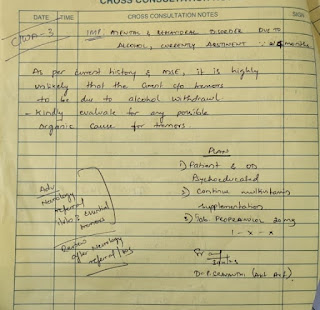 CROSS CONSULTATION
DATE TIME CROSS CONSULTATION NOTES SIGN
IMP. MENTAL & BEHAVIORAL DISORDER DUE TO
ALCOHOL, CURRENTLY ABSTINENT 4 months
As per current history & MSE, it is highly
unlikely that the client c/o tremors
to be due to alcohol withdrawl.
- Kindly evaluate for any possible
organic cause for tremors.
PLAN
1) Patient &
Psychoeducated
2) Continue multivitamin
supplementation
3) Tab PROPRANOLOL 20mg
1 - x - x
Adv
Neurology
referral
tremors
Review
after Neurology
referral